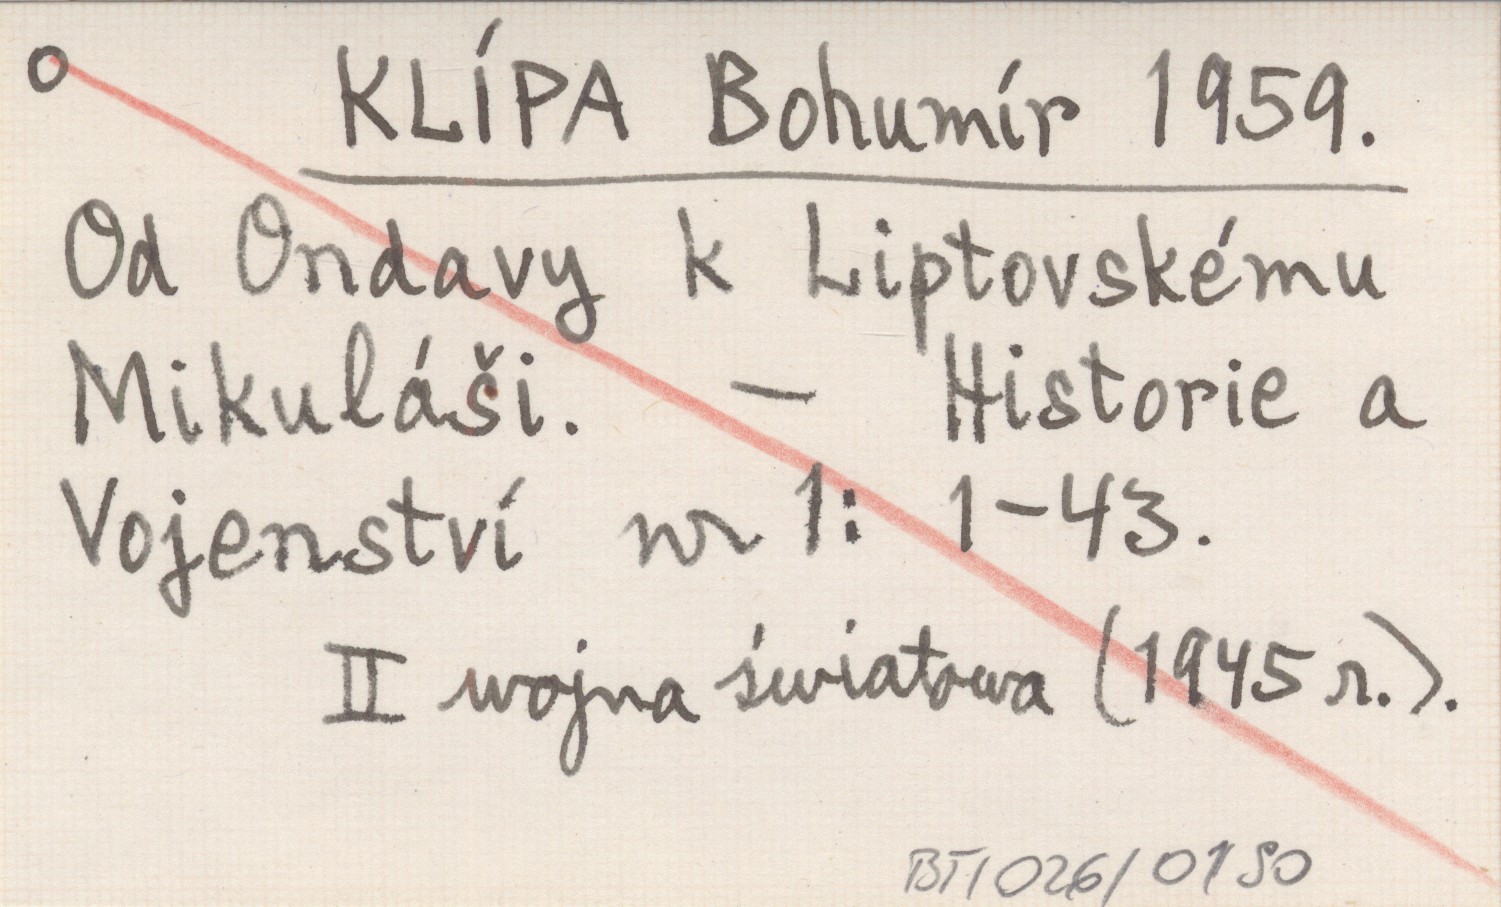 KLÍPA Bohumír 1959.
Od Ondavy k Liptovskému
Mikuláši. — Historie a
Vojenství nr 1: 1-43.
II wojna światowa (1945 r.).
BT/026/0150